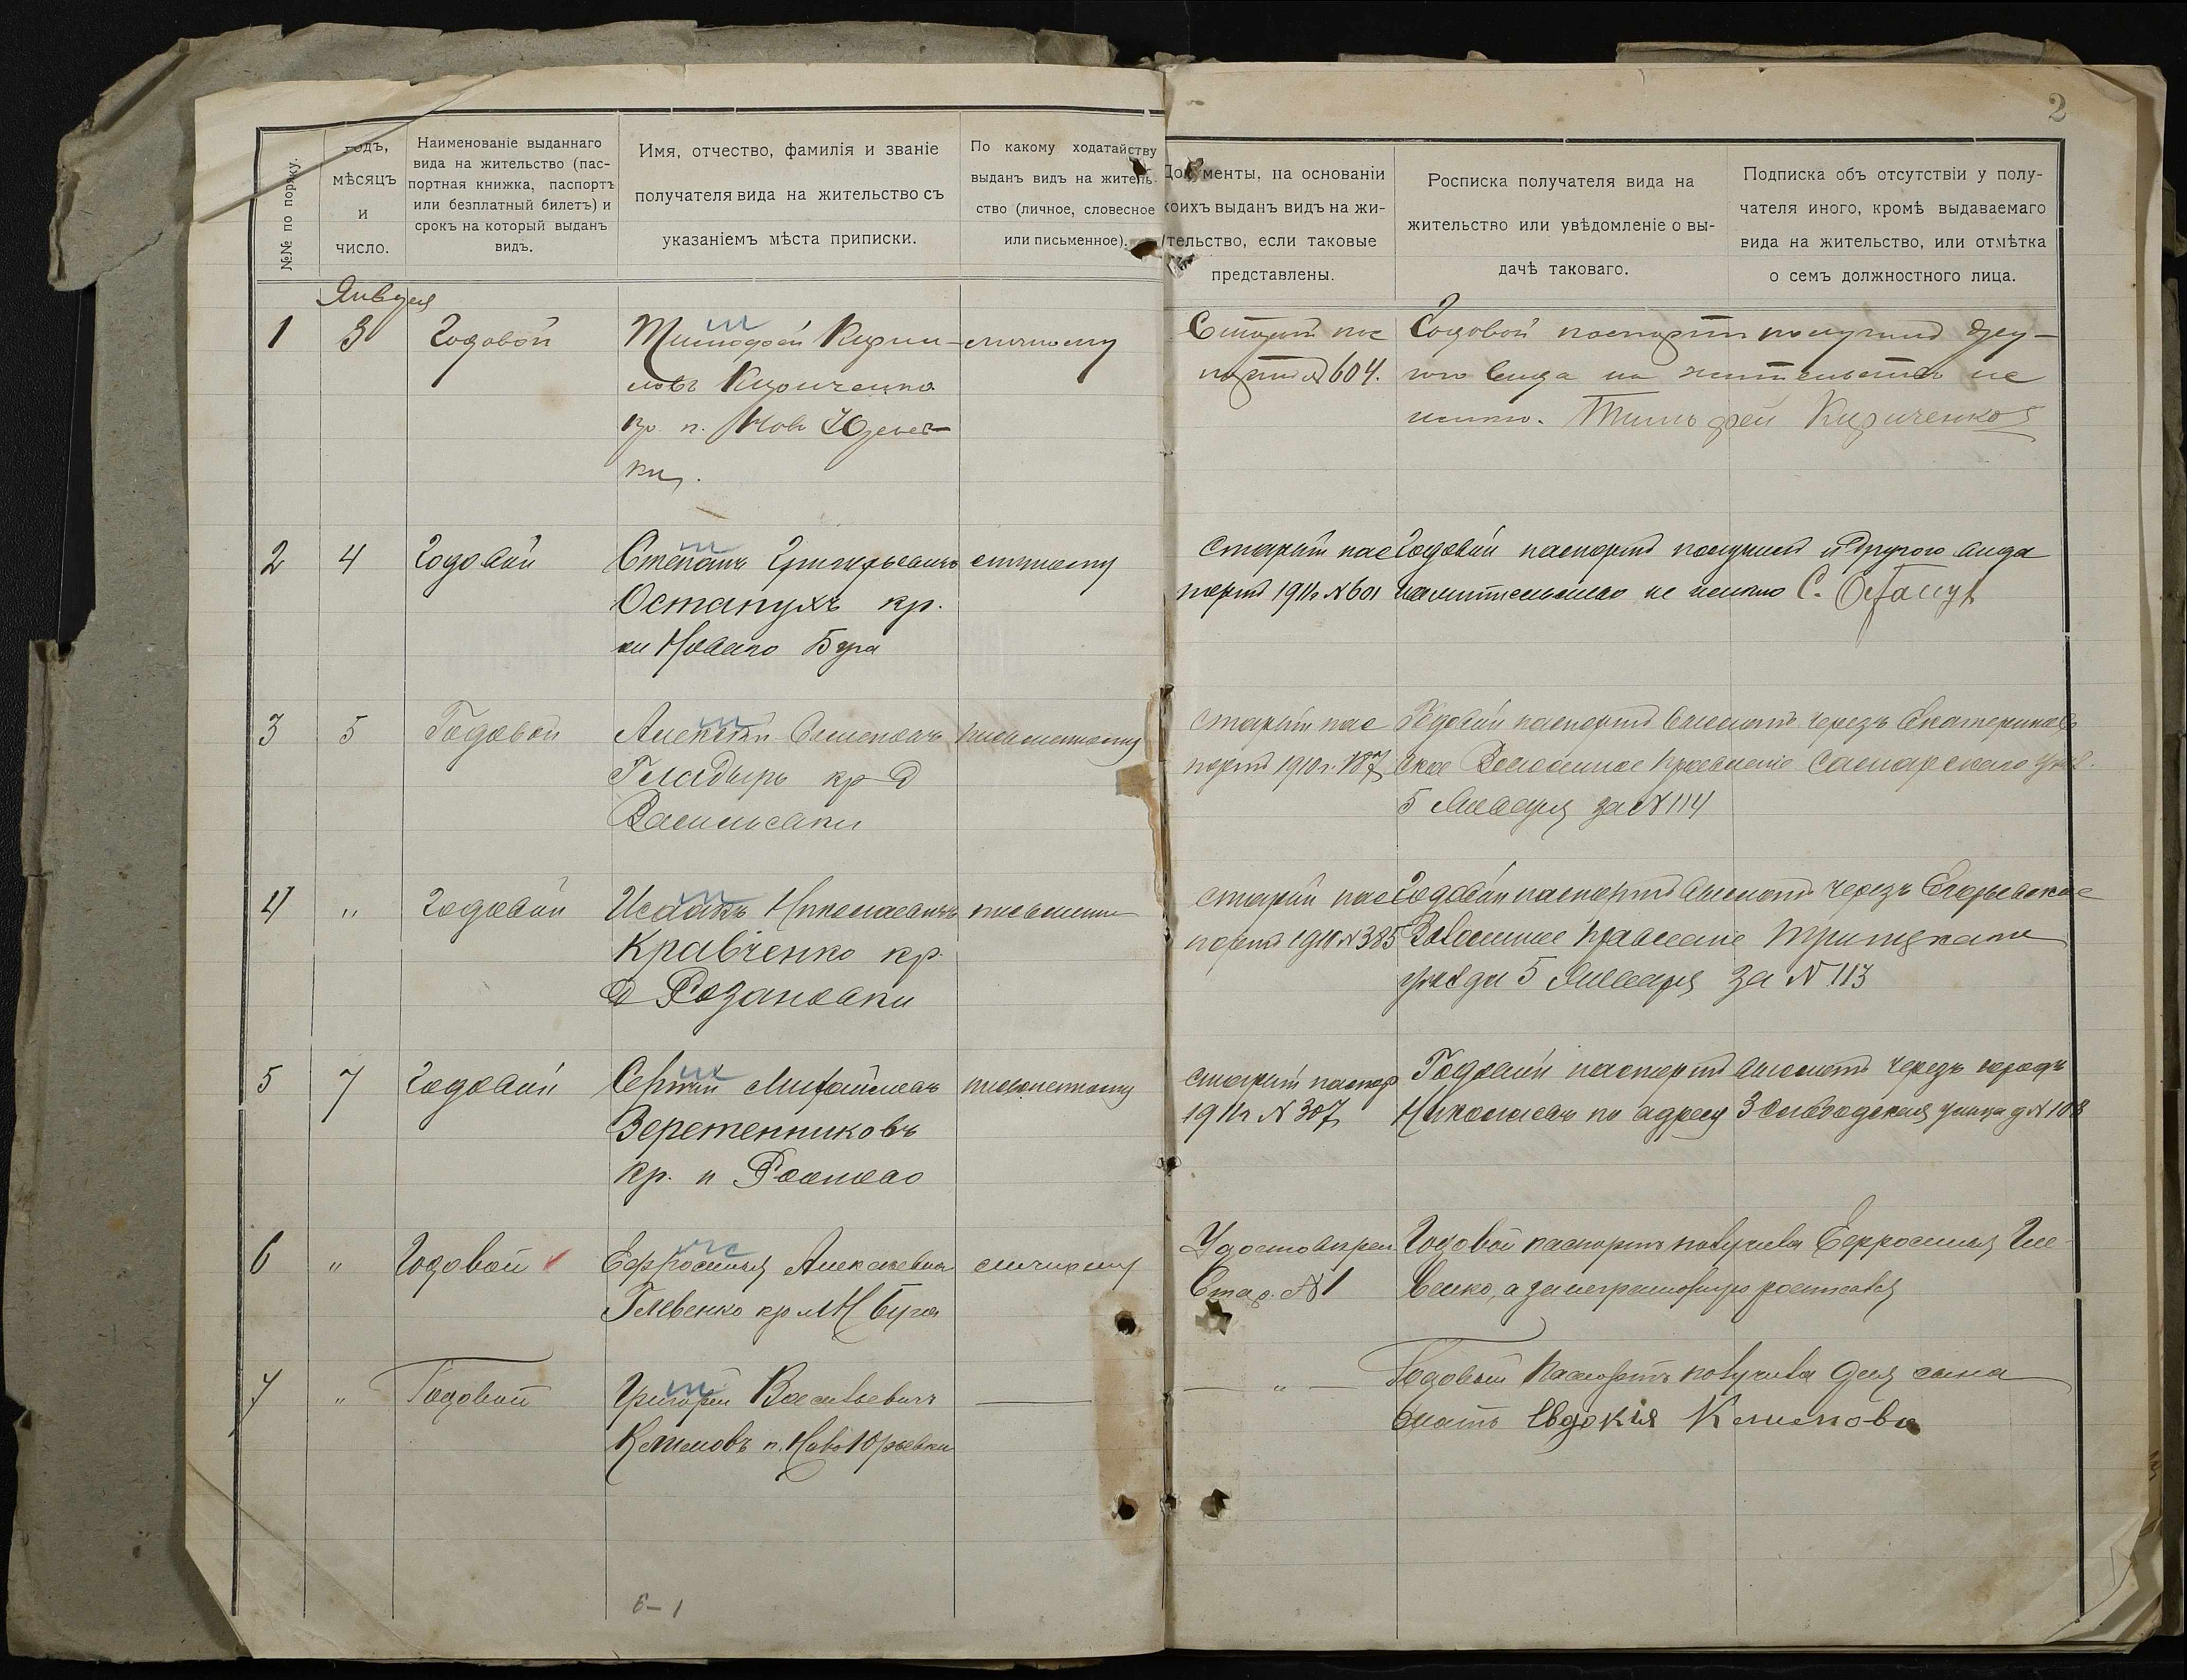 2
№№ по поряку.
годъ,
мѣсяцъ
и
число.
Наименованіе выданнаго
вида на жительство (пас-
портная книжка, паспортъ
или безплатный билетъ) и
срокъ на который выданъ
видъ.
Имя, отчество, фамилія и званіе
получателя вида на жительство съ
указаніемъ мѣста приписки.
По какому ходатайству
выданъ видъ на житель-
ство (личное, словесное
или письменное).
Документы, на основаніи
коихъ выданъ видъ на жи-
тельство, если таковые
представлены.
Росписка получателя вида на
жительство или увѣдомленіе о вы-
дачѣ таковаго.
Подписка объ отсутствіи у полу-
чателя иного, кромѣ выдаваемаго
вида на жительство, или отмѣтка
о семъ должностного лица.
Января
1
3
Годовой
Тимофей Кирил-
ловъ Кириченко
кр. п. Ново Юрьев-
ки.
личному
Старый пас
портъ № 604.
Годовой паспортъ получилъ дру-
гого вида на жительство не
имѣю. Тимофей Кириченко
2
4
Годовой
Степанъ Григорьевичъ
Остапухъ кр.
Новаго Буга
личному
Старый пас
портъ 1911г № 601
Годовой паспортъ получилъ и другого вида
на жительство не имѣю С. Остапух
3
5
Годовой
Алексѣй
Гладырь кр д
Васильевки
письменному
Старый пас
портъ 1910 г.
Годовой паспортъ высланъ черезъ Екатеринов
ское Волостное Правленіе Самарскаго уѣз.
5 Января за № 114
4
"
Годовой
Исаакъ Николаевичъ
Кравченко кр.
д Розановки
письменн
Старый пас
портъ 1910 № 385
Годовой паспортъ высланъ черезъ Егорьевское
Волостное Правленіе
уѣзда 5 Января за № 113
5
7
Годовой
Сергѣй Михайловъ
Веретенниковъ
кр. п
письменному
Старый паспор
1911г № 307
Годовой паспортъ высланъ черезъ городъ
Николаевъ по адресу 3 Слободская улица д № 108
6
"
Годовой
Ефросинья Алексѣевна
Гливенко кр. м Н Буга
личному
Удостовѣрен
Стар. № 1
Годовой паспортъ получила Ефросинья Гли-
венко, а за неграмотную росписався
7
"
Годовой
Григорій Васильевичъ
п. Ново Юрьевки
"
Годовый Паспортъ получила для сына
мать Евдокія
6-1